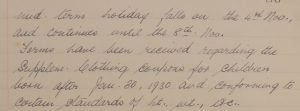 mid-term holiday falls on the 4th Nov.,
and continues until the 8th Nov.
"Forms have been received regarding the
Supplem. Clothing coupons for children
born after Jan. 20, 1930 and conforming to
certain standards of ht., wt., etc.